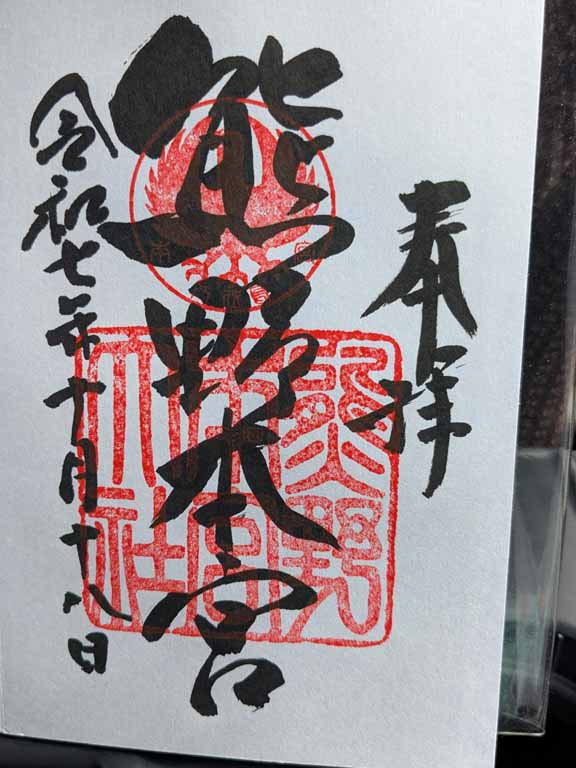 奉拝
熊野本宮
令和七年十月十八日
熊野
本宮
大社